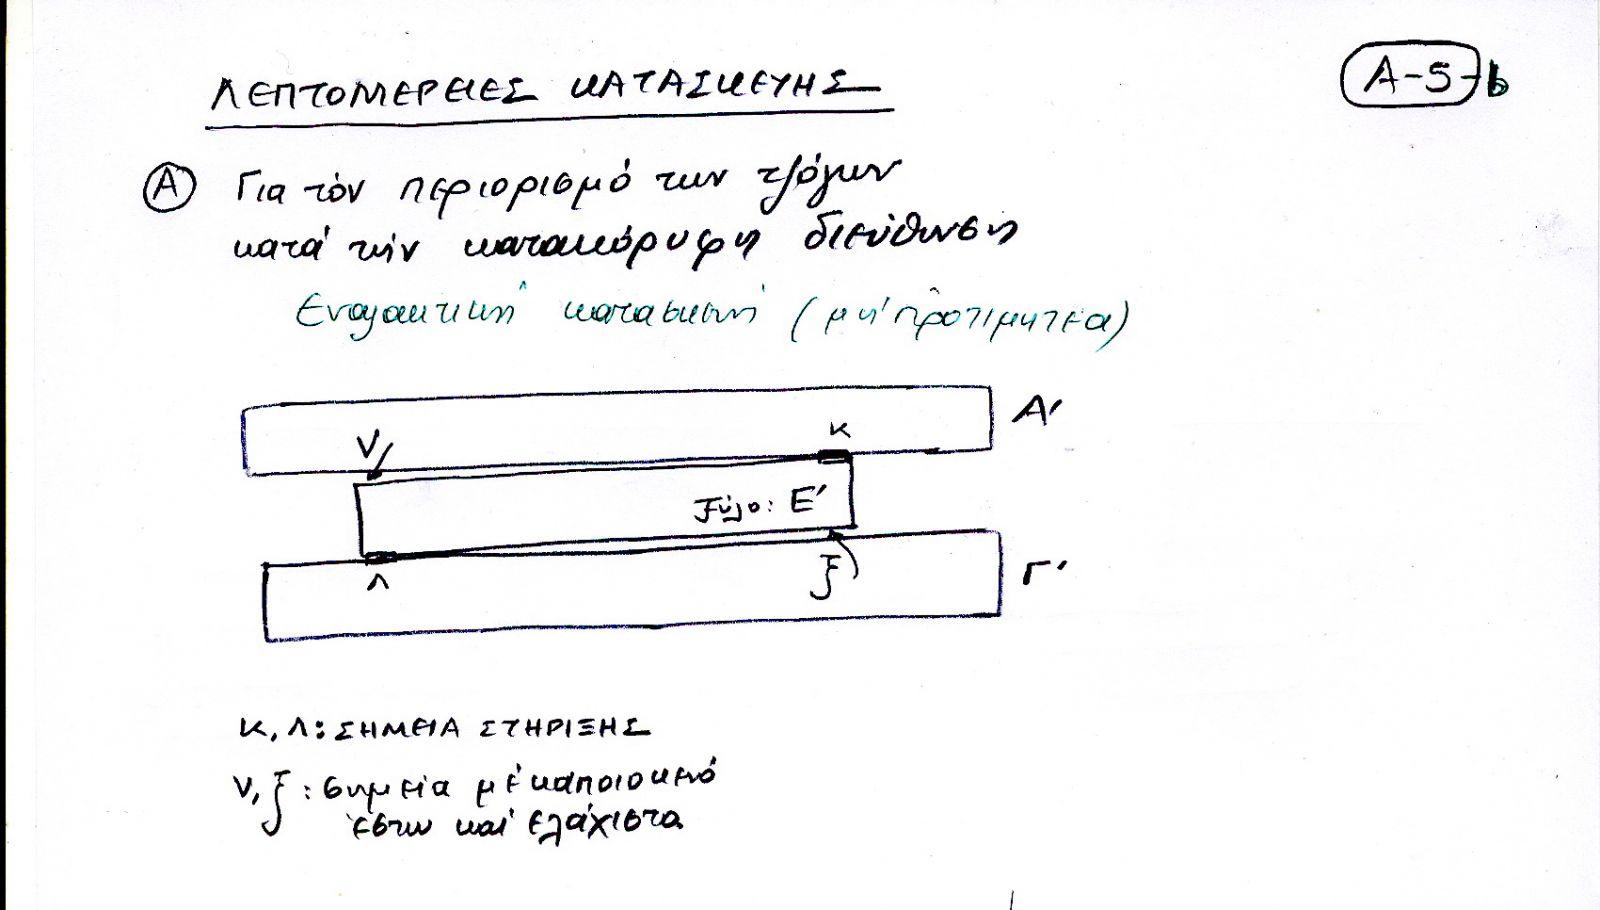 ΛΕΠΤΟΜΕΡΕΙΕΣ ΚΑΤΑΣΚΕΥΗΣ
Α-5-b
Α Για τόν περιορισμό των τζόγων
κατά τήν κατακόρυφη διεύθυνση
Εναλακτική κατασκευή (μή προτιμητέα)
Α'
ν
κ
Ξύλο: Ε'
Λ
ξ
Γ'
Κ, Λ: ΣΗΜΕΙΑ ΣΤΗΡΙΞΗΣ
ν, ξ: σημεία μέ κάποιο κενό
έστω καί ελάχιστα